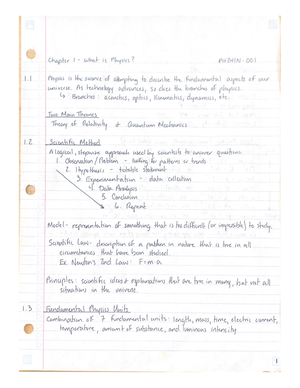 Chapter 1 - What is Physics?
PHY241N-001
1.1 Physics is the science of attempting to describe the fundamental aspects of our
universe. As technology advances, so does the branches of physics.
↳ Branches: acoustics, optics, kinematics, dynamics, etc.
Two Main Theories
Theory of Relativity & Quantum Mechanics
1.2 Scientific Method
A logical, stepwise approach used by scientists to answer questions.
1. Observation/Problem - looking for patterns or trends
2. Hypothesis - testable statement
3. Experimentation - data collection
4. Data Analysis
5. Conclusion
6. Repeat
Model - representation of something that is too difficult (or impossible) to study.
Scientific Law - description of a problem in nature that is true in all
circumstances that have been studied.
Ex. Newton's 2nd Law: F=m·a
Principles: scientific ideas & explanations that are true in many, but not all
situations in the universe.
1.3 Fundamental Physics Units
Combination of 7 fundamental units: length, mass, time, electric current,
temperature, amount of substance, and luminous intensity
1